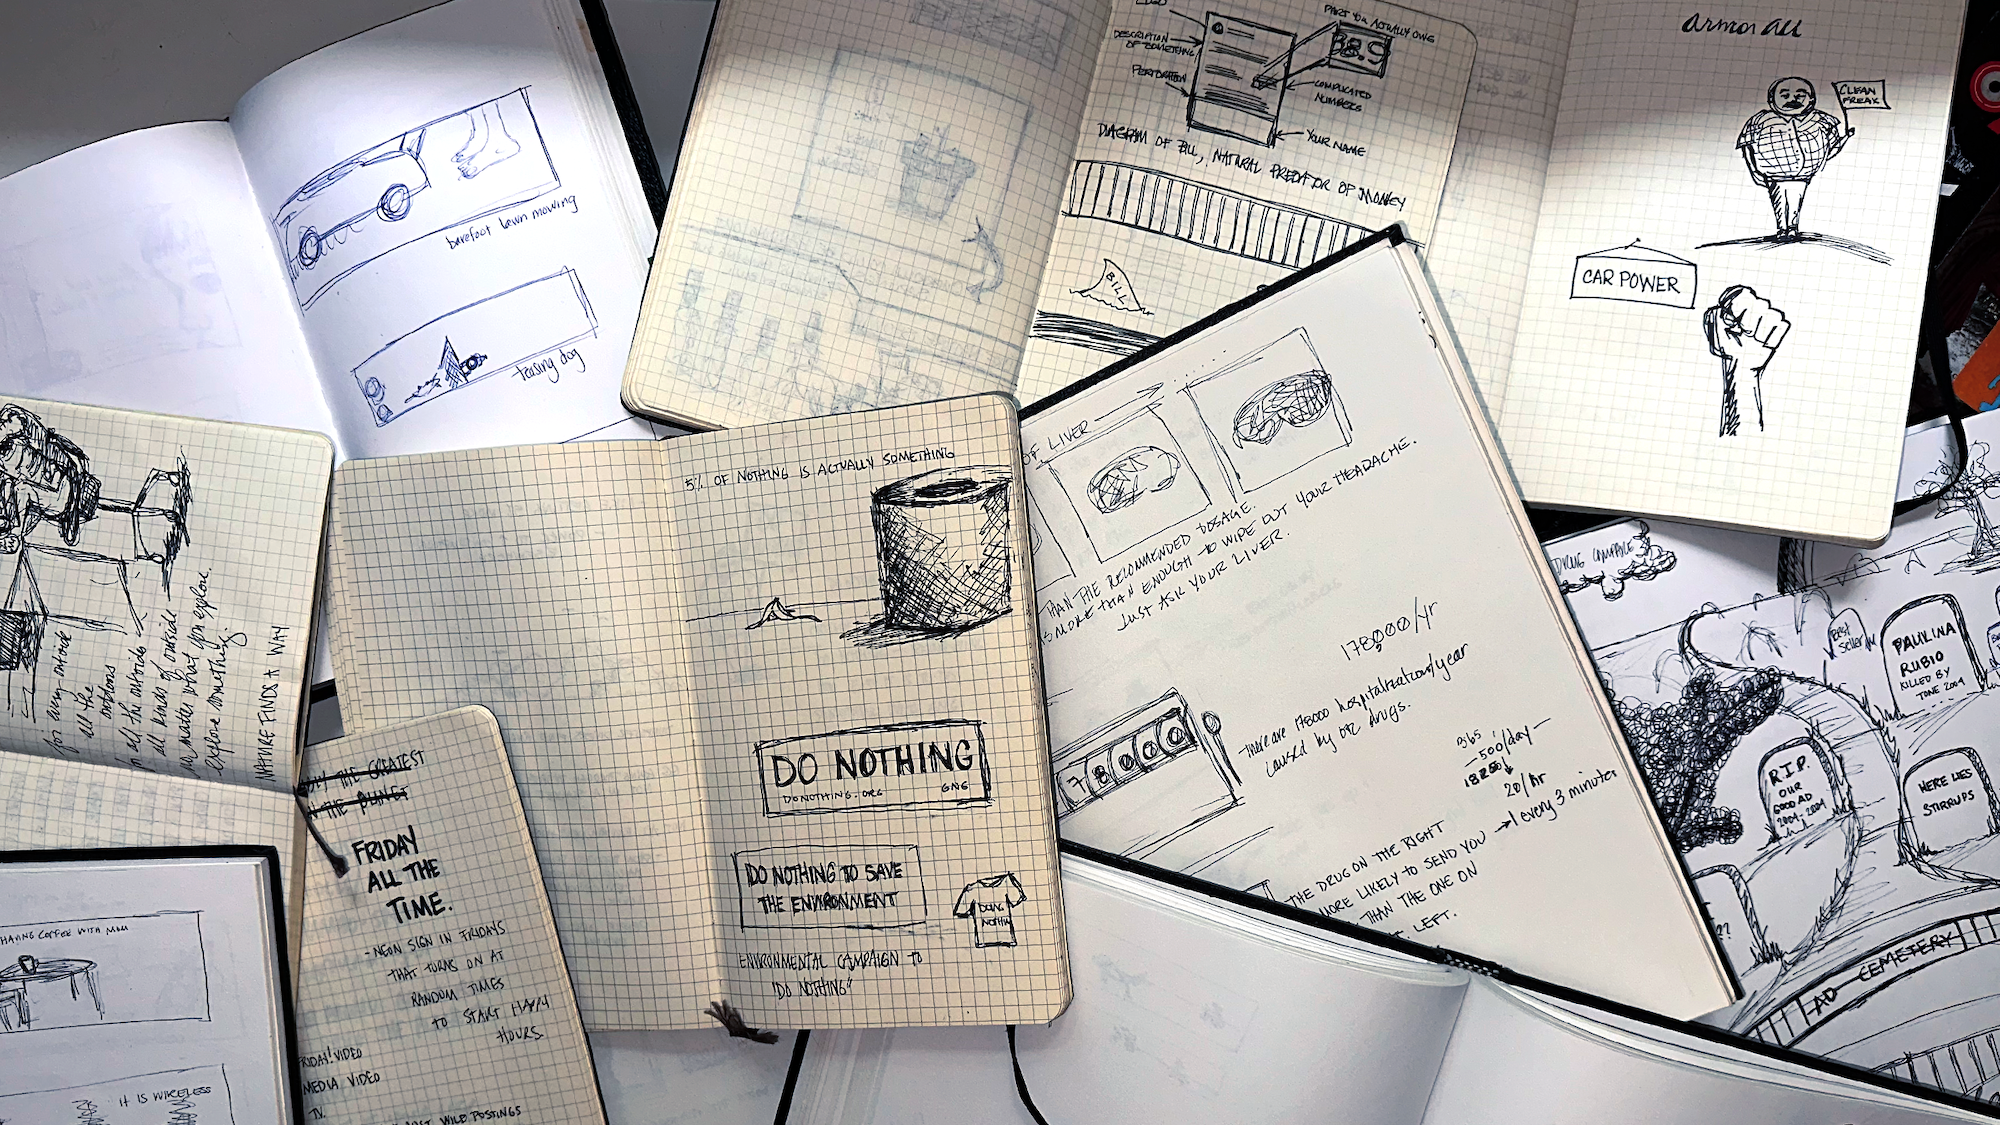 barefoot lawn mowing
teasing dog
LOGO
DESCRIPTION
OF SOMETHING
PERFORATION
PART YOU ACTUALLY OWE
38.9
COMPLICATED
NUMBERS
YOUR NAME
DIAGRAM OF BILL, NATURAL PREDATOR OF MONEY
BILL
armor all
CLEAN
FREAK
CAR POWER
for living outside
all the
outdoors
in all the outsides
all kinds of outside
no matter what you explore
explore something.
NATURE FINDS A WAY
5% OF NOTHING IS ACTUALLY SOMETHING
DO NOTHING
DONOTHING.ORG
DO NOTHING TO SAVE
THE ENVIRONMENT
DOING
NOTHIN
ENVIRONMENTAL CAMPAIGN TO
"DO NOTHING"
OF LIVER
THAN THE RECOMMENDED DOSAGE.
MORE THAN ENOUGH TO WIPE OUT YOUR HEADACHE.
JUST ASK YOUR LIVER.
178,000/yr
There are 178000 hospitalizations/year
caused by otc drugs.
78000
365
500/day
20/hr
1 every 3 minutes
THE DRUG ON THE RIGHT
MORE LIKELY TO SEND YOU
THAN THE ONE ON
LEFT.
DYING CAMPAIGN
Best
Seller
PAULINA
RUBIO
KILLED BY
TONE 2004
R.I.P.
OUR
GOOD AD
2004-2004
HERE LIES
STIRRUPS
??
AD CEMETERY
THE GREATEST
THE PLANET
FRIDAY
ALL THE
TIME.
- NEON SIGN IN FRIDAYS
THAT TURNS ON AT
RANDOM TIMES
TO START HAPPY
HOURS.
FRIDAY! VIDEO
MEDIA VIDEO
TV.
WILD POSTINGS
HAVING COFFEE WITH MOM
IT IS WIRELESS